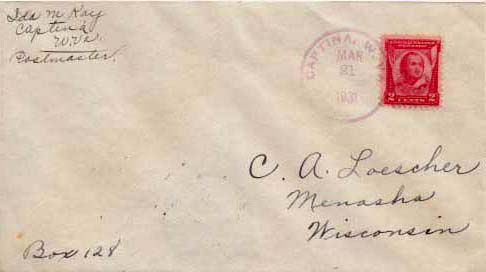 Ida M Kay
Captina
W.Va.
Postmaster.
CAPTINA, W.VA.
MAR
21
1931
2 CENTS 2
C. A. Loescher
Menasha
Wisconsin
Box 128